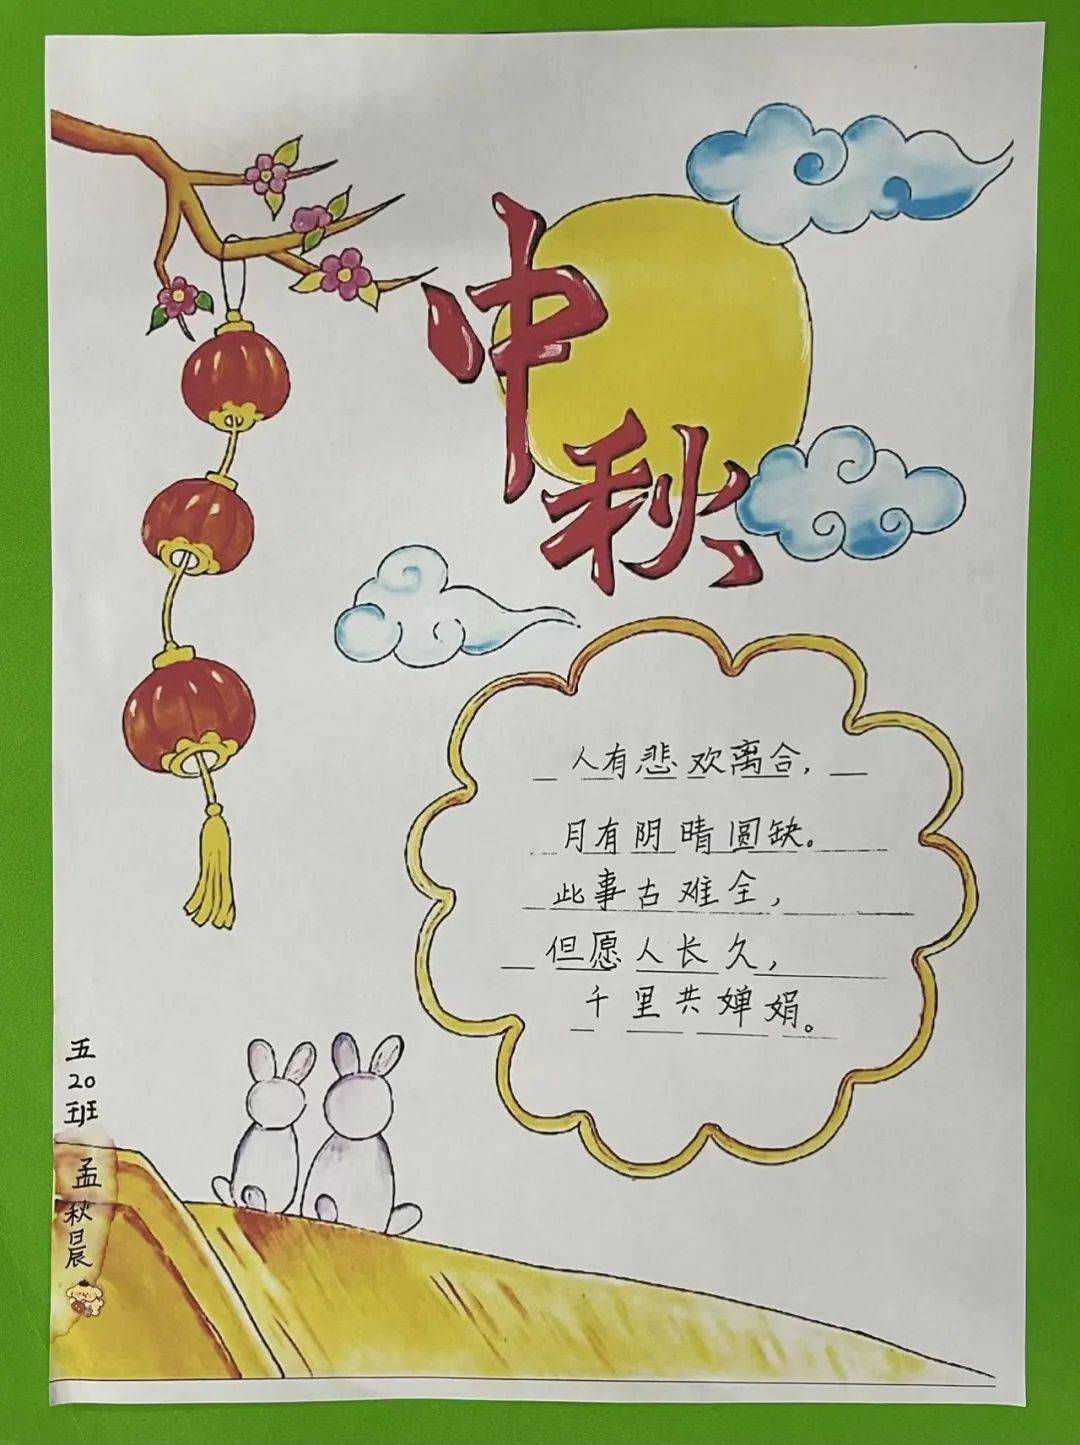 中秋
人有悲欢离合,
月有阴晴圆缺。
此事古难全,
但愿人长久,
千里共婵娟。
五20班 孟秋晨